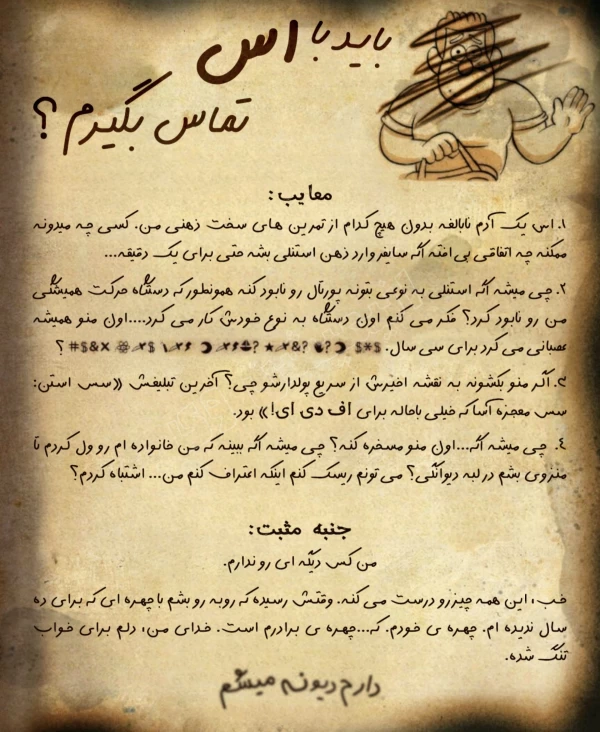 باید با اس
تماس بگیرم؟
معایب:
۱. اس یک آدم نابالغه بدون هیچ کدام از تمرین های سخت ذهنی من. کسی چه میدونه
ممکنه چه اتفاقی بی افته اگه سایفر وارد ذهن استنلی بشه حتی برای یک دقیقه...
۲. چی میشه اگه استنلی به نوعی بتونه پورتال رو نابود کنه همونطور که دستگاه حرکت همیشگی
من رو نابود کرد؟ فکر می کنم اون دستگاه به نوع خودش کار می کرد....اون منو همیشه
عصبانی می کرد برای سی سال.
۳. اگر منو بکشونه به نقشه اخیرش از سریع پولدارشو چی؟ آخرین تبلیغش «سس استن:
سس معجزه آسا که خیلی باحاله برای اف دی ای!» بود.
۴. چی میشه اگه...اون منو مسخره کنه؟ چی میشه اگه ببینه که من خانواده ام رو ول کردم تا
منزوی بشم در لبه دیوانگی؟ می تونم ریسک کنم اینکه اعتراف کنم من... اشتباه کردم؟
جنبه مثبت:
من کس دیگه ای رو ندارم.
خب، این همه چیز رو درست می کنه. وقتش رسیده که روبه رو بشم با چهره ای که برای ده
سال ندیده ام. چهره ی خودم. که...چهره ی برادرم است. خدای من، دلم برای خواب
تنگ شده.
دارم دیونه میشم